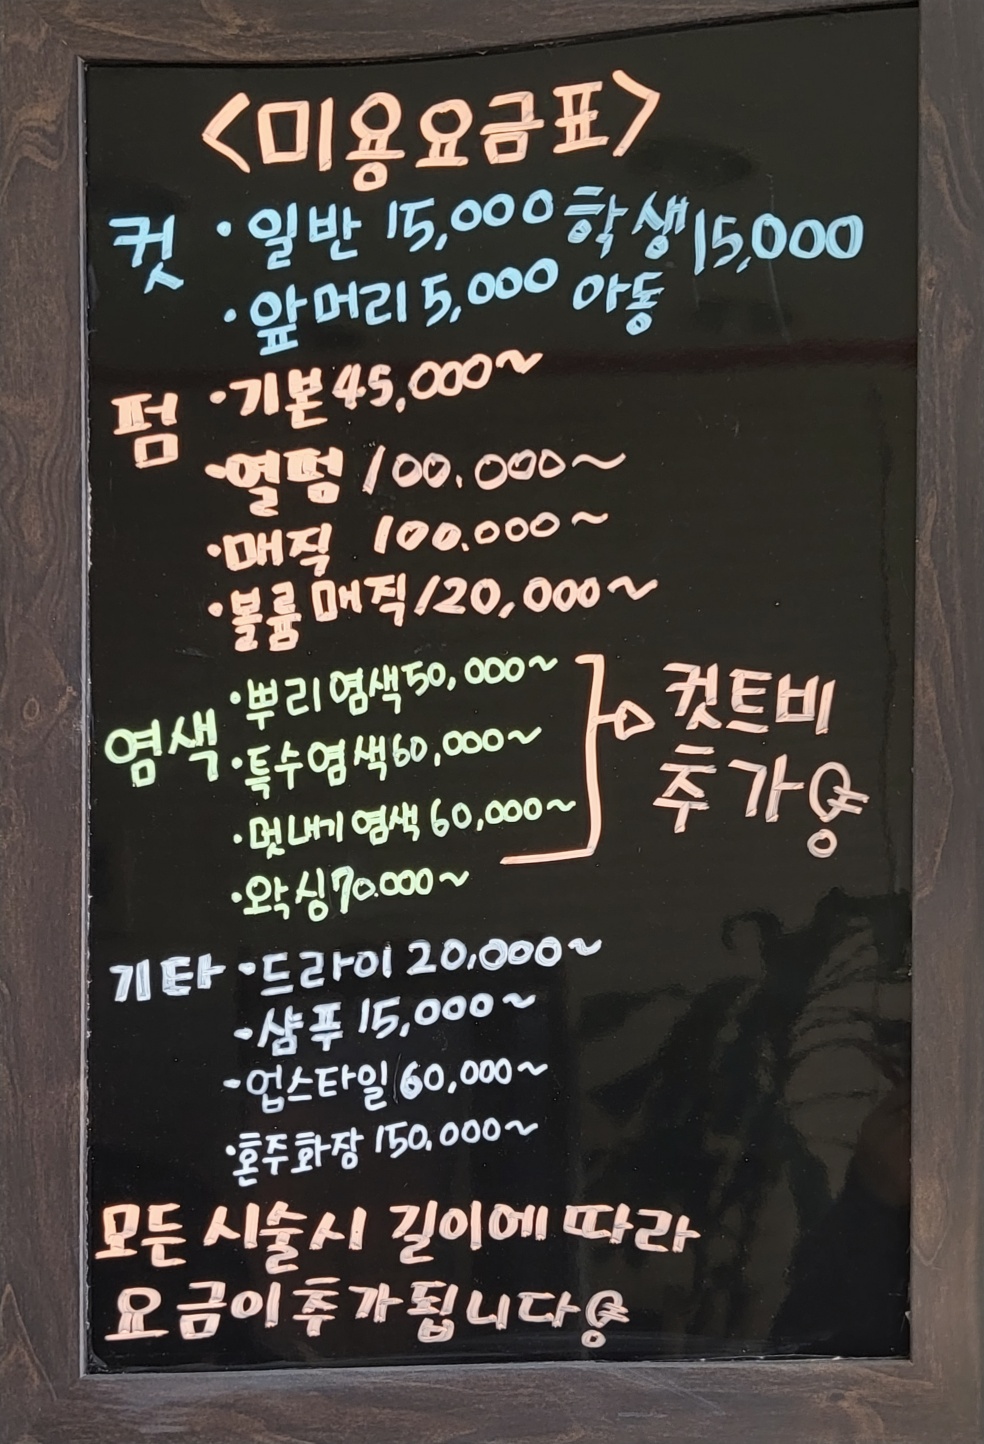 <미용요금표>
컷 ·일반 15,000 학생 15,000
·앞머리 5,000 아동
펌 ·기본 45,000~
·열펌 100.000~
·매직 100.000~
·볼륨매직 120,000~
·뿌리염색 50,000~
염색 ·특수염색 60,000~
·멋내기염색 60,000~
·왁싱 70.000~
컷트비
추가
기타 ·드라이 20,000~
-샴푸 15,000~
-업스타일 60,000~
·혼주화장 150,000~
모든 시술시 길이에 따라
요금이 추가됩니다